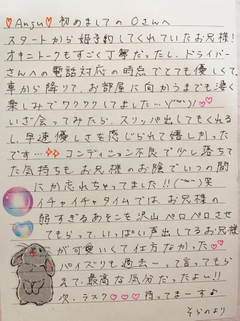 ♥Anju♥ 初めましての Oさんへ
スタートから姫予約してくれていたお兄様!
オキニトークもすごく丁寧だったし、ドライバー
さんへの電話対応の時点でとても優しくて、
車から降りて、お部屋に向かうまでも凄く
楽しみでワクワクしてました…♡♡
いざ会ってみたら、スリッパ出してもくれるし
早速優しさを感じられて嬉しかった
です…♡♡ コンディション不良で少し落ちて
た気持ちも、お兄様のお陰でいつの間
にか忘れちゃってました!! 笑
イチャイチャタイムでは、お兄様の
弱すぎるあそこを沢山ペロペロさせ
てもらって、いっぱい声出してるお兄様
が可愛いくて仕方なかった♡
パイズリも過去一って言ってもら
えて、最高な気分だったよ!!
次、ラスク♡♡♡ 持ってまーす♪
そらのより